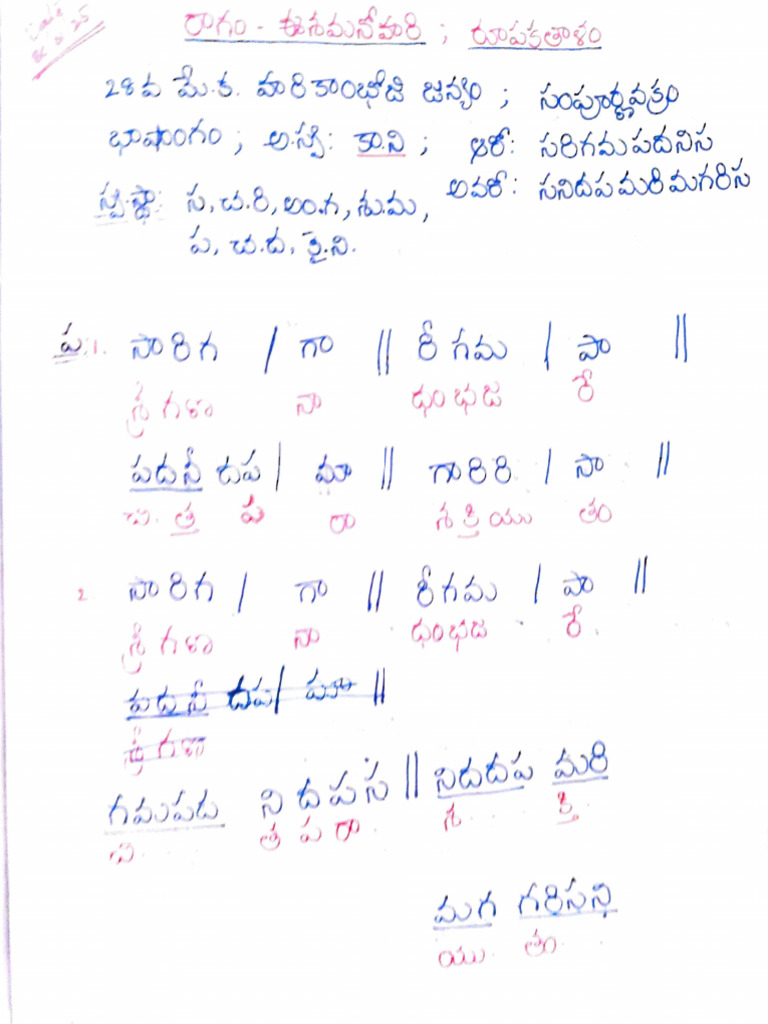 రాగం - ఈశమనోహరి ; రూపకతాళం
28వ మే.క. హరికాంభోజి జన్యం ; సంపూర్ణవక్రం
భాషాంగం ; అ.స్వ: కా.ని ; ఆరో: సరిగమపదనిస
స్వ.స్థా: స, చ.రి, అం.గ, శు.మ, అవరో: సనిదపమరిమగరిస
ప, చ.ద, కై.ని.
ప: 1. సారిగ / గా || రీగమ / పా ||
శ్రీగణ నా ధంభజ రే
పదనీ దప / మా || గారిరి / సా ||
చి.త్ర ప రా శక్తియు తం
2. సారిగ / గా || రీగమ / పా ||
శ్రీగణ నా ధంభజ రే.
పదనీ దప/ మా ||
శ్రీగణ
గమపద నిదపస || నిదదప మరి
చి. త ప రా శ క్తి
మగ గరిసని
యు తం